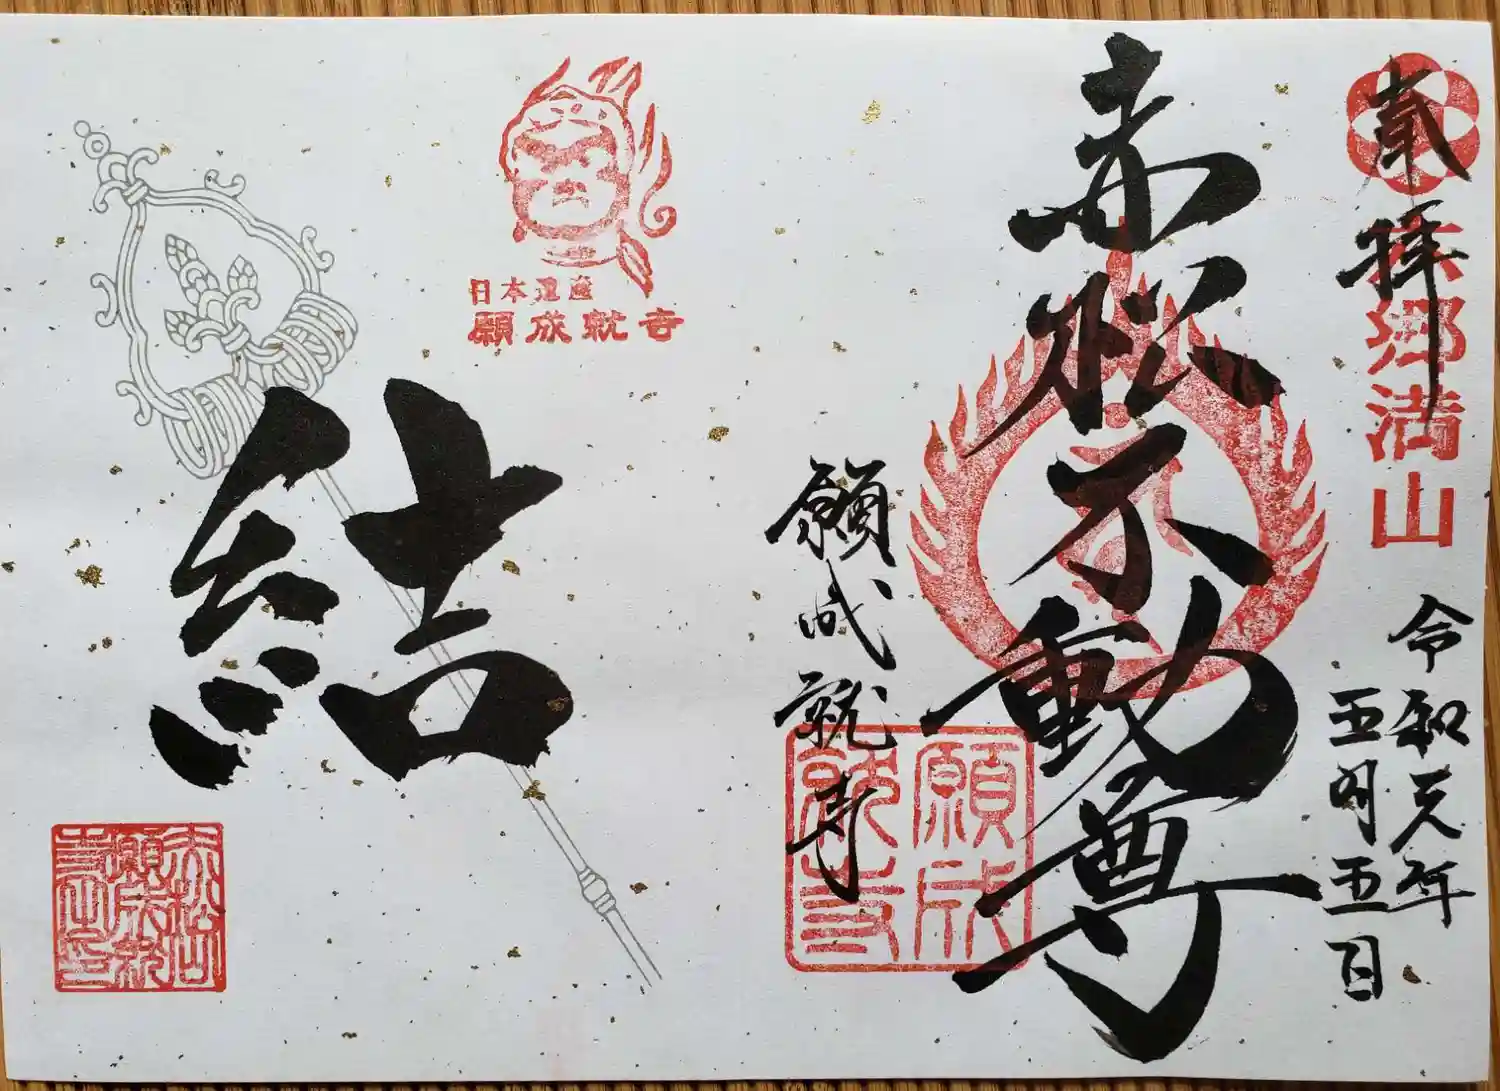 拝
六郷満山
令和元年
五月五日
赤松不動尊
願成就寺
願成就寺
日本遺産
願成就寺
結
赤松山願成就寺之印